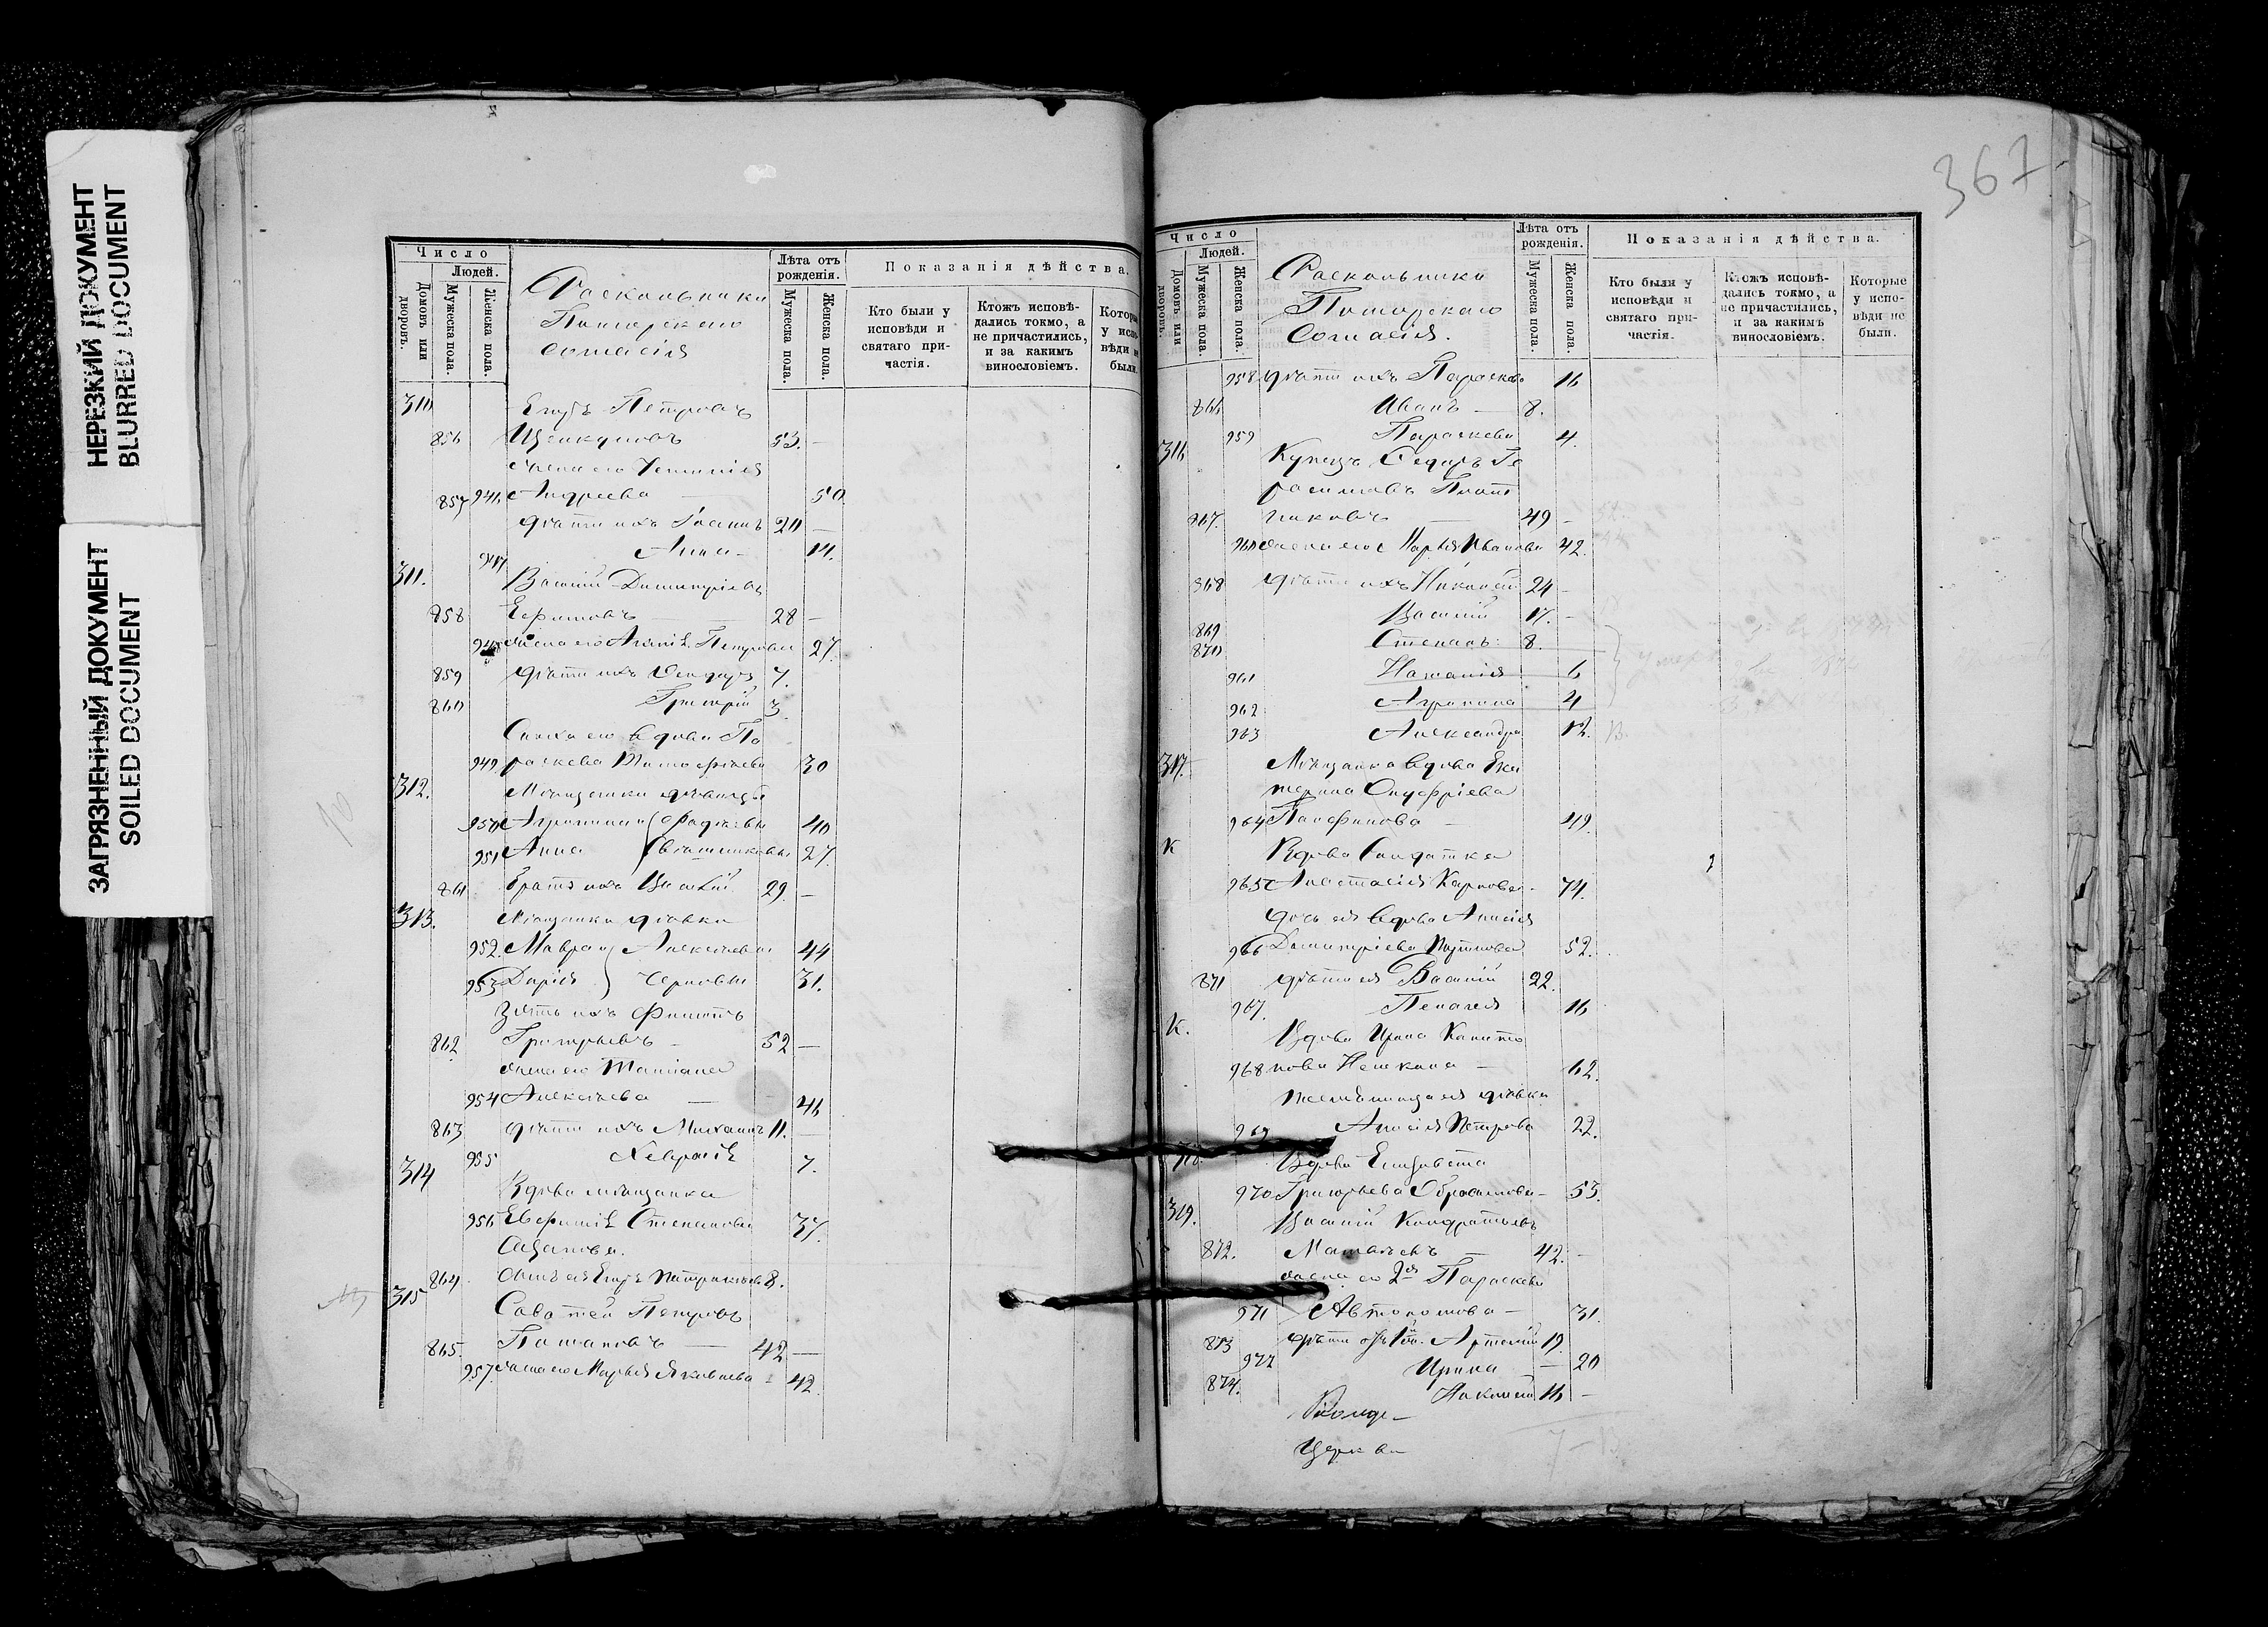 НЕРЕЗКИЙ ДОКУМЕНТ
BLURRED DOCUMENT
ЗАГРЯЗНЕННЫЙ ДОКУМЕНТ
SOILED DOCUMENT
Число
Людей.
Домовъ или дворовъ.
Мужеска пола.
Женска пола.
Раскольники
Поморскаго
согласія
Лѣта отъ рожденія.
Мужеска пола.
Женска пола.
Показанія дѣйства.
Кто были у исповѣди и святаго причастія.
Ктожъ исповѣдались токмо, а не причастились, и за какимъ винословіемъ.
310 Егоръ Петровъ
856 53 —
жена его
857 946 Андреева — 50
дѣти ихъ Іоаннъ 20 —
947 Анна — 14.
311. Василій Димитріевъ
858 Ефимовъ 28 —
948 жена его Петрова 27.
859 дѣти ихъ Ѳеодоръ 7.
860 Григорій 3
Сноха его вдова Па
949. раскева Тимофѣева 30
312. Мѣщанки дѣвицы
950 Агрипина 40
951 Анна 27.
861 братъ ихъ Василій 29. —
313. Мѣщанки дѣвки
952. Мавра Алексѣевы 44
953 Дарія Черновы 31.
Зять ихъ Филиппъ
862 Григорьевъ — 52 —
жена его Татіана
954 Алексѣева — 46
863 дѣти ихъ Михаилъ 11. —
955 Хевронія 7.
314 Вдова мѣщанка
956 Евфимія Степанова 37.
864 сынъ ея Егоръ 8.
315 Саватей Петровъ
865. Потаповъ — 42 —
957. жена его Марья Яковлева - 42.
367
Число
Людей.
Домовъ или дворовъ.
Мужеска пола.
Женска пола.
Раскольники
Поморскаго
согласія.
Лѣта отъ рожденія.
Мужеска пола.
Женска пола.
Показанія дѣйства.
Кто были у исповѣди и святаго причастія.
Ктожъ исповѣдались токмо, а не причастились, и за какимъ винословіемъ.
Которые у исповѣди не были.
958 дѣти ихъ Параскева 16
866 Иванъ — 8.
959 Параскева 4.
316 Купецъ Ѳедоръ Ге
расимовъ Плот
867. никовъ — 49 —
960 жена его Марья Иванова 42.
868 дѣти ихъ Николай 24 —
869 Василій 17. —
870 Степанъ 8.
961 Наталія 6
962 Агрипина 4
963 Александра 12.
317. Мѣщанка вдова Ека
терина Онуфріева
964 Панфилова — 49.
К Вдова Солдатка
965 Анастасія Карпова - 74.
дочь ея вдова Анисія
966 Димитріева 52.
871 дѣти ея Василій 22.
967. Пелагея 16
К. Вдова Ирина Капито
968 нова — 62.
племянница ея дѣвка
969 Анисія Петрова 22.
318. Вдова Елизавета
970 Григорьева Абросимова — 53.
319. Василій Кондратьевъ
872. Матвѣевъ — 42. —
жена его 2я Параскева
971 Автономова — 31.
873 дѣти отъ 1й Артемій 19.
972 Ирина — 20
874. 16 —
Церкви